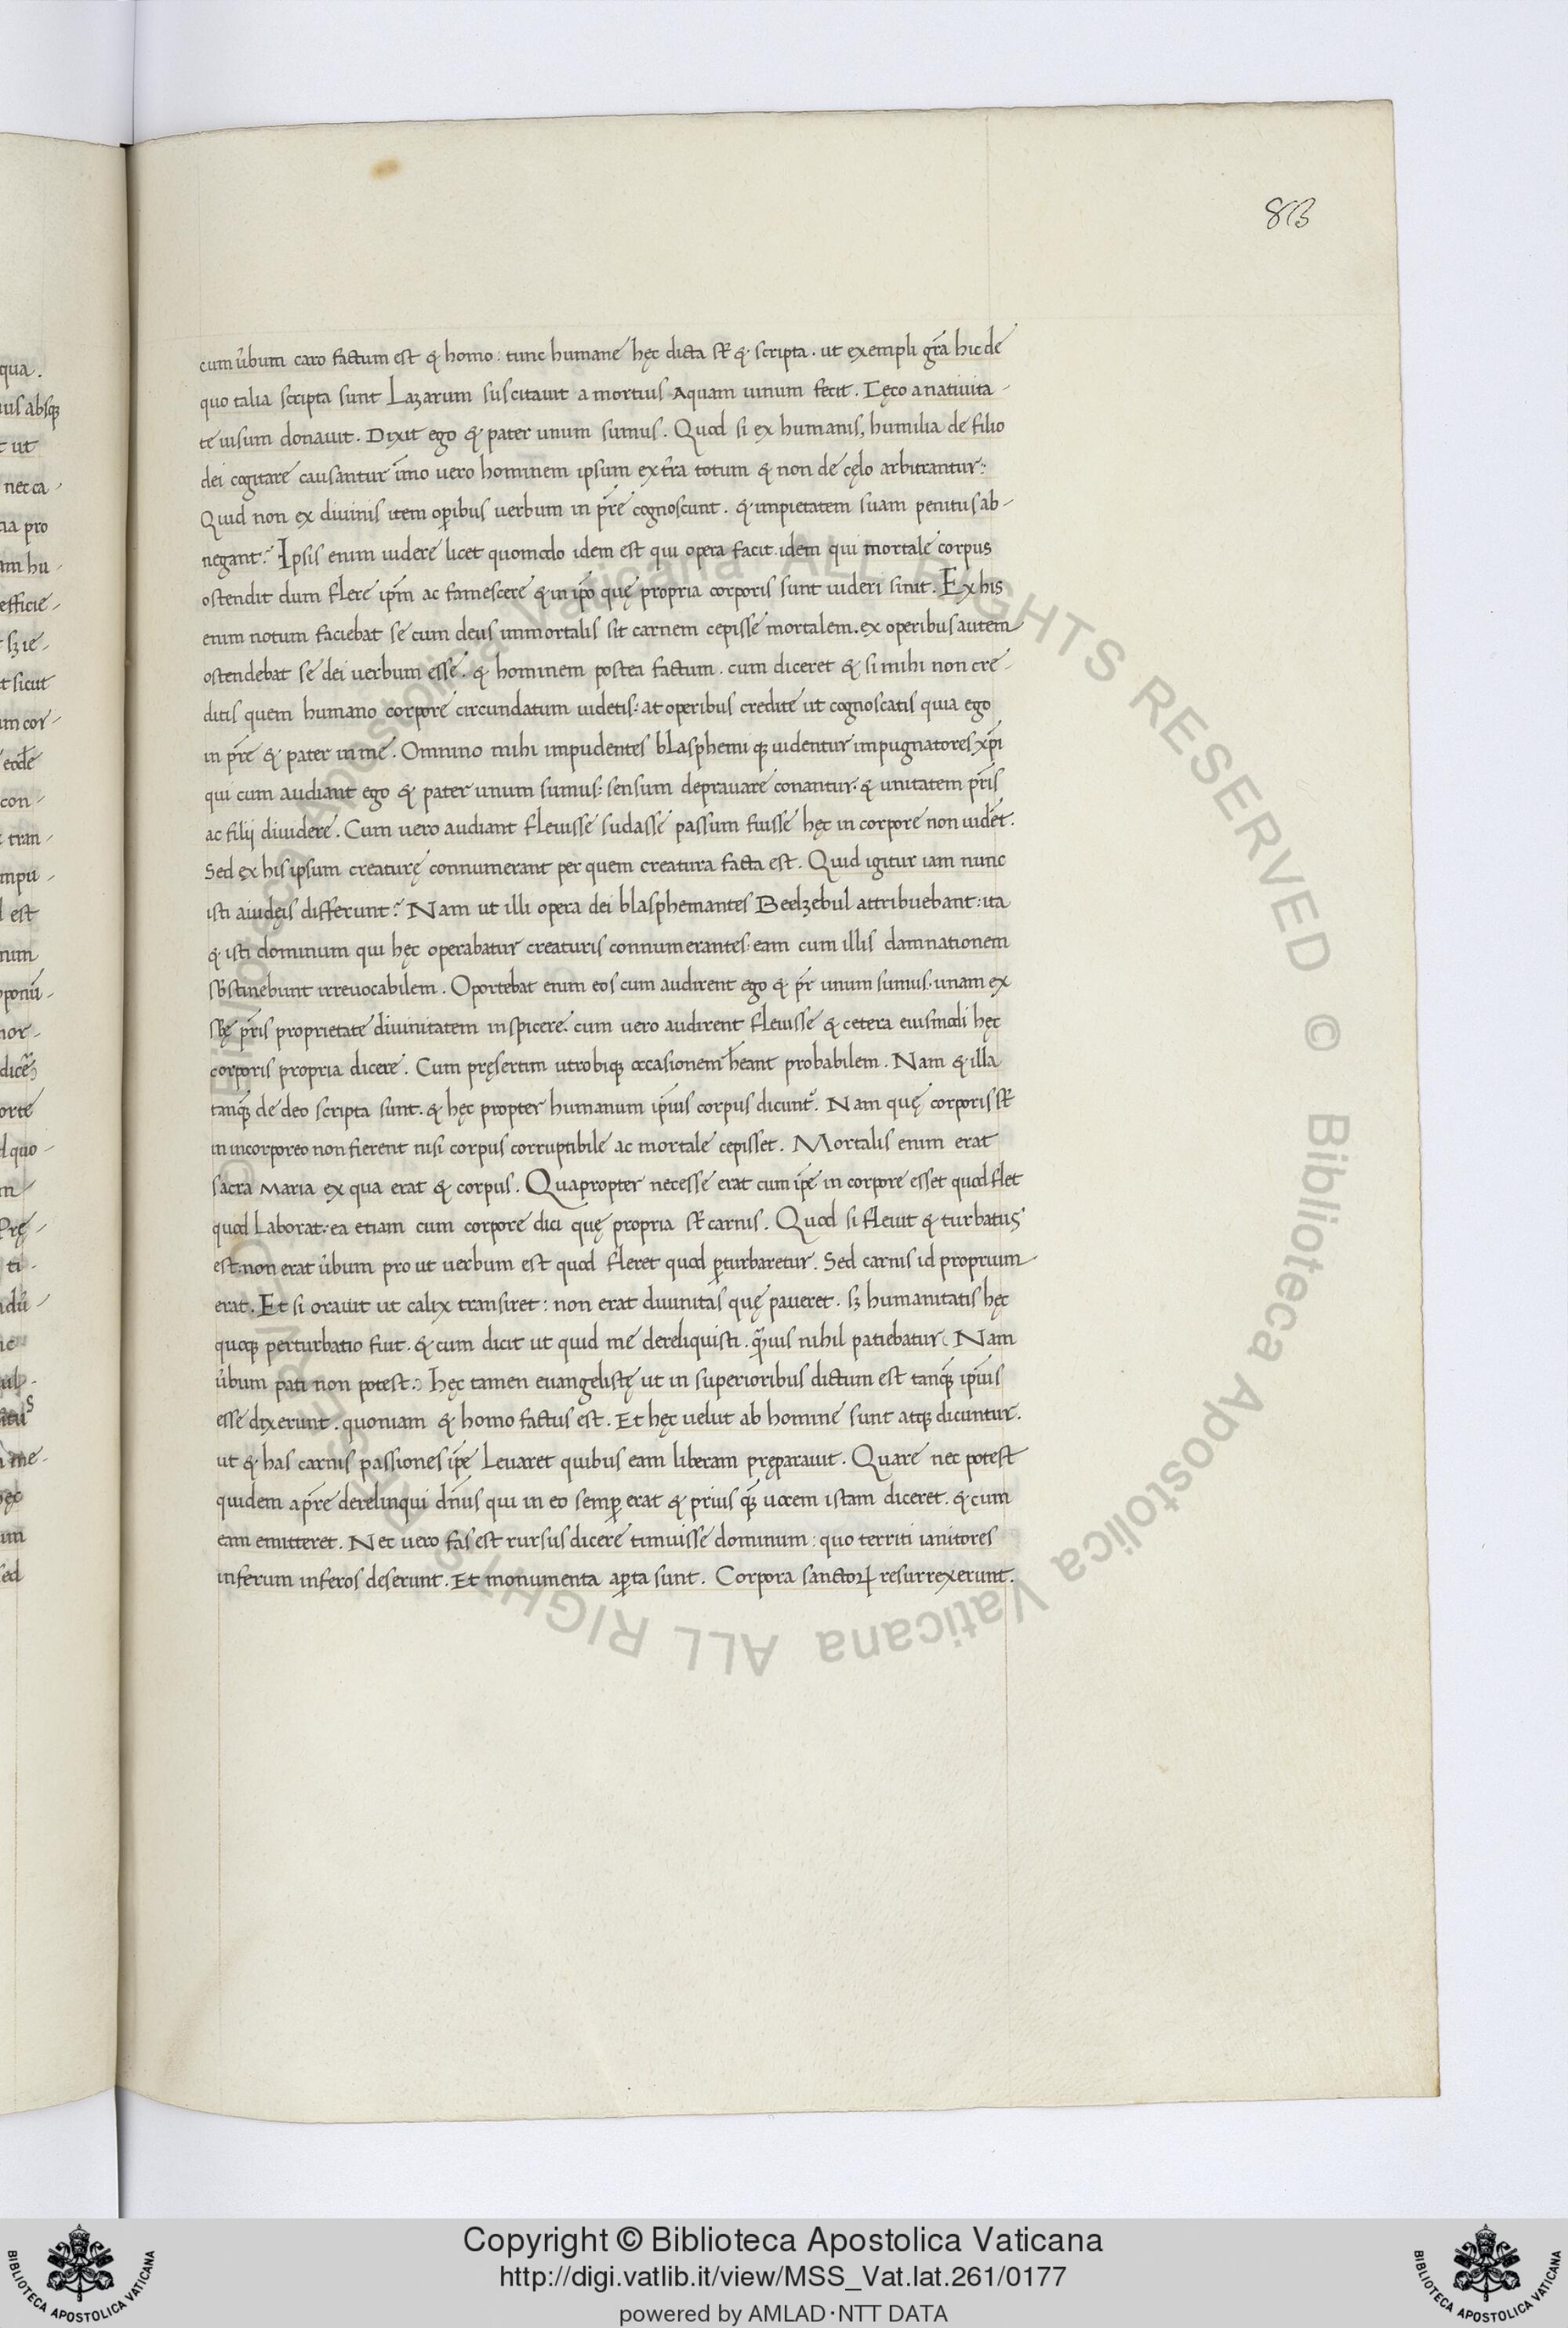 83
cum ũbum caro factum est & homo: tunc humane hęc dicta st̃ & scripta. ut exempli gr̃a hic de
quo talia scripta sunt Lazarum suscitauit a mortius Aquam uinum fecit. Cęco a natiuita-
te uisum donauit. Dixit ego & pater unum sumus. Quod si ex humanis, humilia de filio
dei cogitare causantur ĩmo uero hominem ipsum ex tr̃a totum & non de cęlo arbitrantur:
Quid non ex diuinis item oꝑibus uerbum in pr̃e cognoscunt. & impietatem suam penitus ab-
negant? Ipsis enim uidere licet quomodo idem est qui opera facit idem qui mortale corpus
ostendit dum flere ip̃m ac famescere & in ip̃o quę propria corporis sunt uideri sinit. Ex his
enim notum faciebat se cum deus immortalis sit carnem cepisse mortalem. ex operibus autem
ostendebat se dei uerbum esse. & hominem postea factum. cum diceret & si mihi non cre-
ditis quem humano corpore circundatum uidetis: at operibus credite ut cognoscatis quia ego
in pr̃e & pater in me. Omnino mihi impudentes blasphemi qꝫ uidentur impugnatores xp̃i
qui cum audiant ego & pater unum sumus: sensum deprauare conantur. & unitatem pr̃is
ac filij diuidere. Cum uero audiant fleuisse sudasse passum fuisse hęc in corpore non uidẽt.
Sed ex his ipsum creaturę connumerant per quem creatura facta est. Quid igitur iam nunc
isti a iudęis differunt? Nam ut illi opera dei blasphemantes Beelzebul attribuebant: ita
& isti dominum qui hęc operabatur creaturis connumerantes: eam cum illis damnationem
sb̃stinebunt irreuocabilem. Oportebat enim eos cum audirent ego & pr̃ unum sumus. unam ex
sb̃ę pr̃is proprietate diuinitatem inspicere. cum uero audirent fleuisse & cetera eiusmodi hęc
corporis propria dicere. Cum pręsertim utrobiqꝫ occasionem h̃eant probabilem. Nam & illa
tanqꝫ̃ de deo scripta sunt. & hęc propter humanum ip̃ius corpus dicunt᷑. Nam quę corporis st̃
in incorporeo non fierent nisi corpus corruptibile ac mortale cepisset. Mortalis enim erat
sacra Maria ex qua erat & corpus. Quapropter necesse erat cum ip̃e in corpore esset quod flet
quod laborat: ea etiam cum corpore dici quę propria st̃ carnis. Quod si fleuit & turbatus
est: non erat ũbum pro ut uerbum est quod fleret quod ꝑturbaretur. Sed carnis id proprium
erat. Et si orauit ut calix transiret: non erat diuinitas quę paueret. sꝫ humanitatis hęc
quoqꝫ perturbatio fuit. & cum dicit ut quid me dereliquisti. qꝫ̃uis nihil patiebatur (Nam
ũbum pati non potest:) hęc tamen euangelistę ut in superioribus dictum est tanqꝫ̃ ip̃ius
esse dixerunt. quoniam & homo factus est. Et hęc uelut ab homine sunt atqꝫ dicuntur.
ut & has carnis passiones ip̃e leuaret quibus eam liberam pręparauit. Quare nec potest
quidem a pr̃e derelinqui dñius qui in eo semꝑ erat & prius qꝫ̃ uocem istam diceret. & cum
eam emitteret. Nec uero fas est rursus dicere timuisse dominum: quo territi ianitores
inferum inferos deserunt. Et monumenta aꝑta sunt. Corpora sanctoꝝ resurrexerunt.
Copyright © Biblioteca Apostolica Vaticana
http://digi.vatlib.it/view/MSS_Vat.lat.261/0177
powered by AMLAD·NTT DATA
BIBLIOTECA APOSTOLICA VATICANA
BIBLIOTECA APOSTOLICA VATICANA